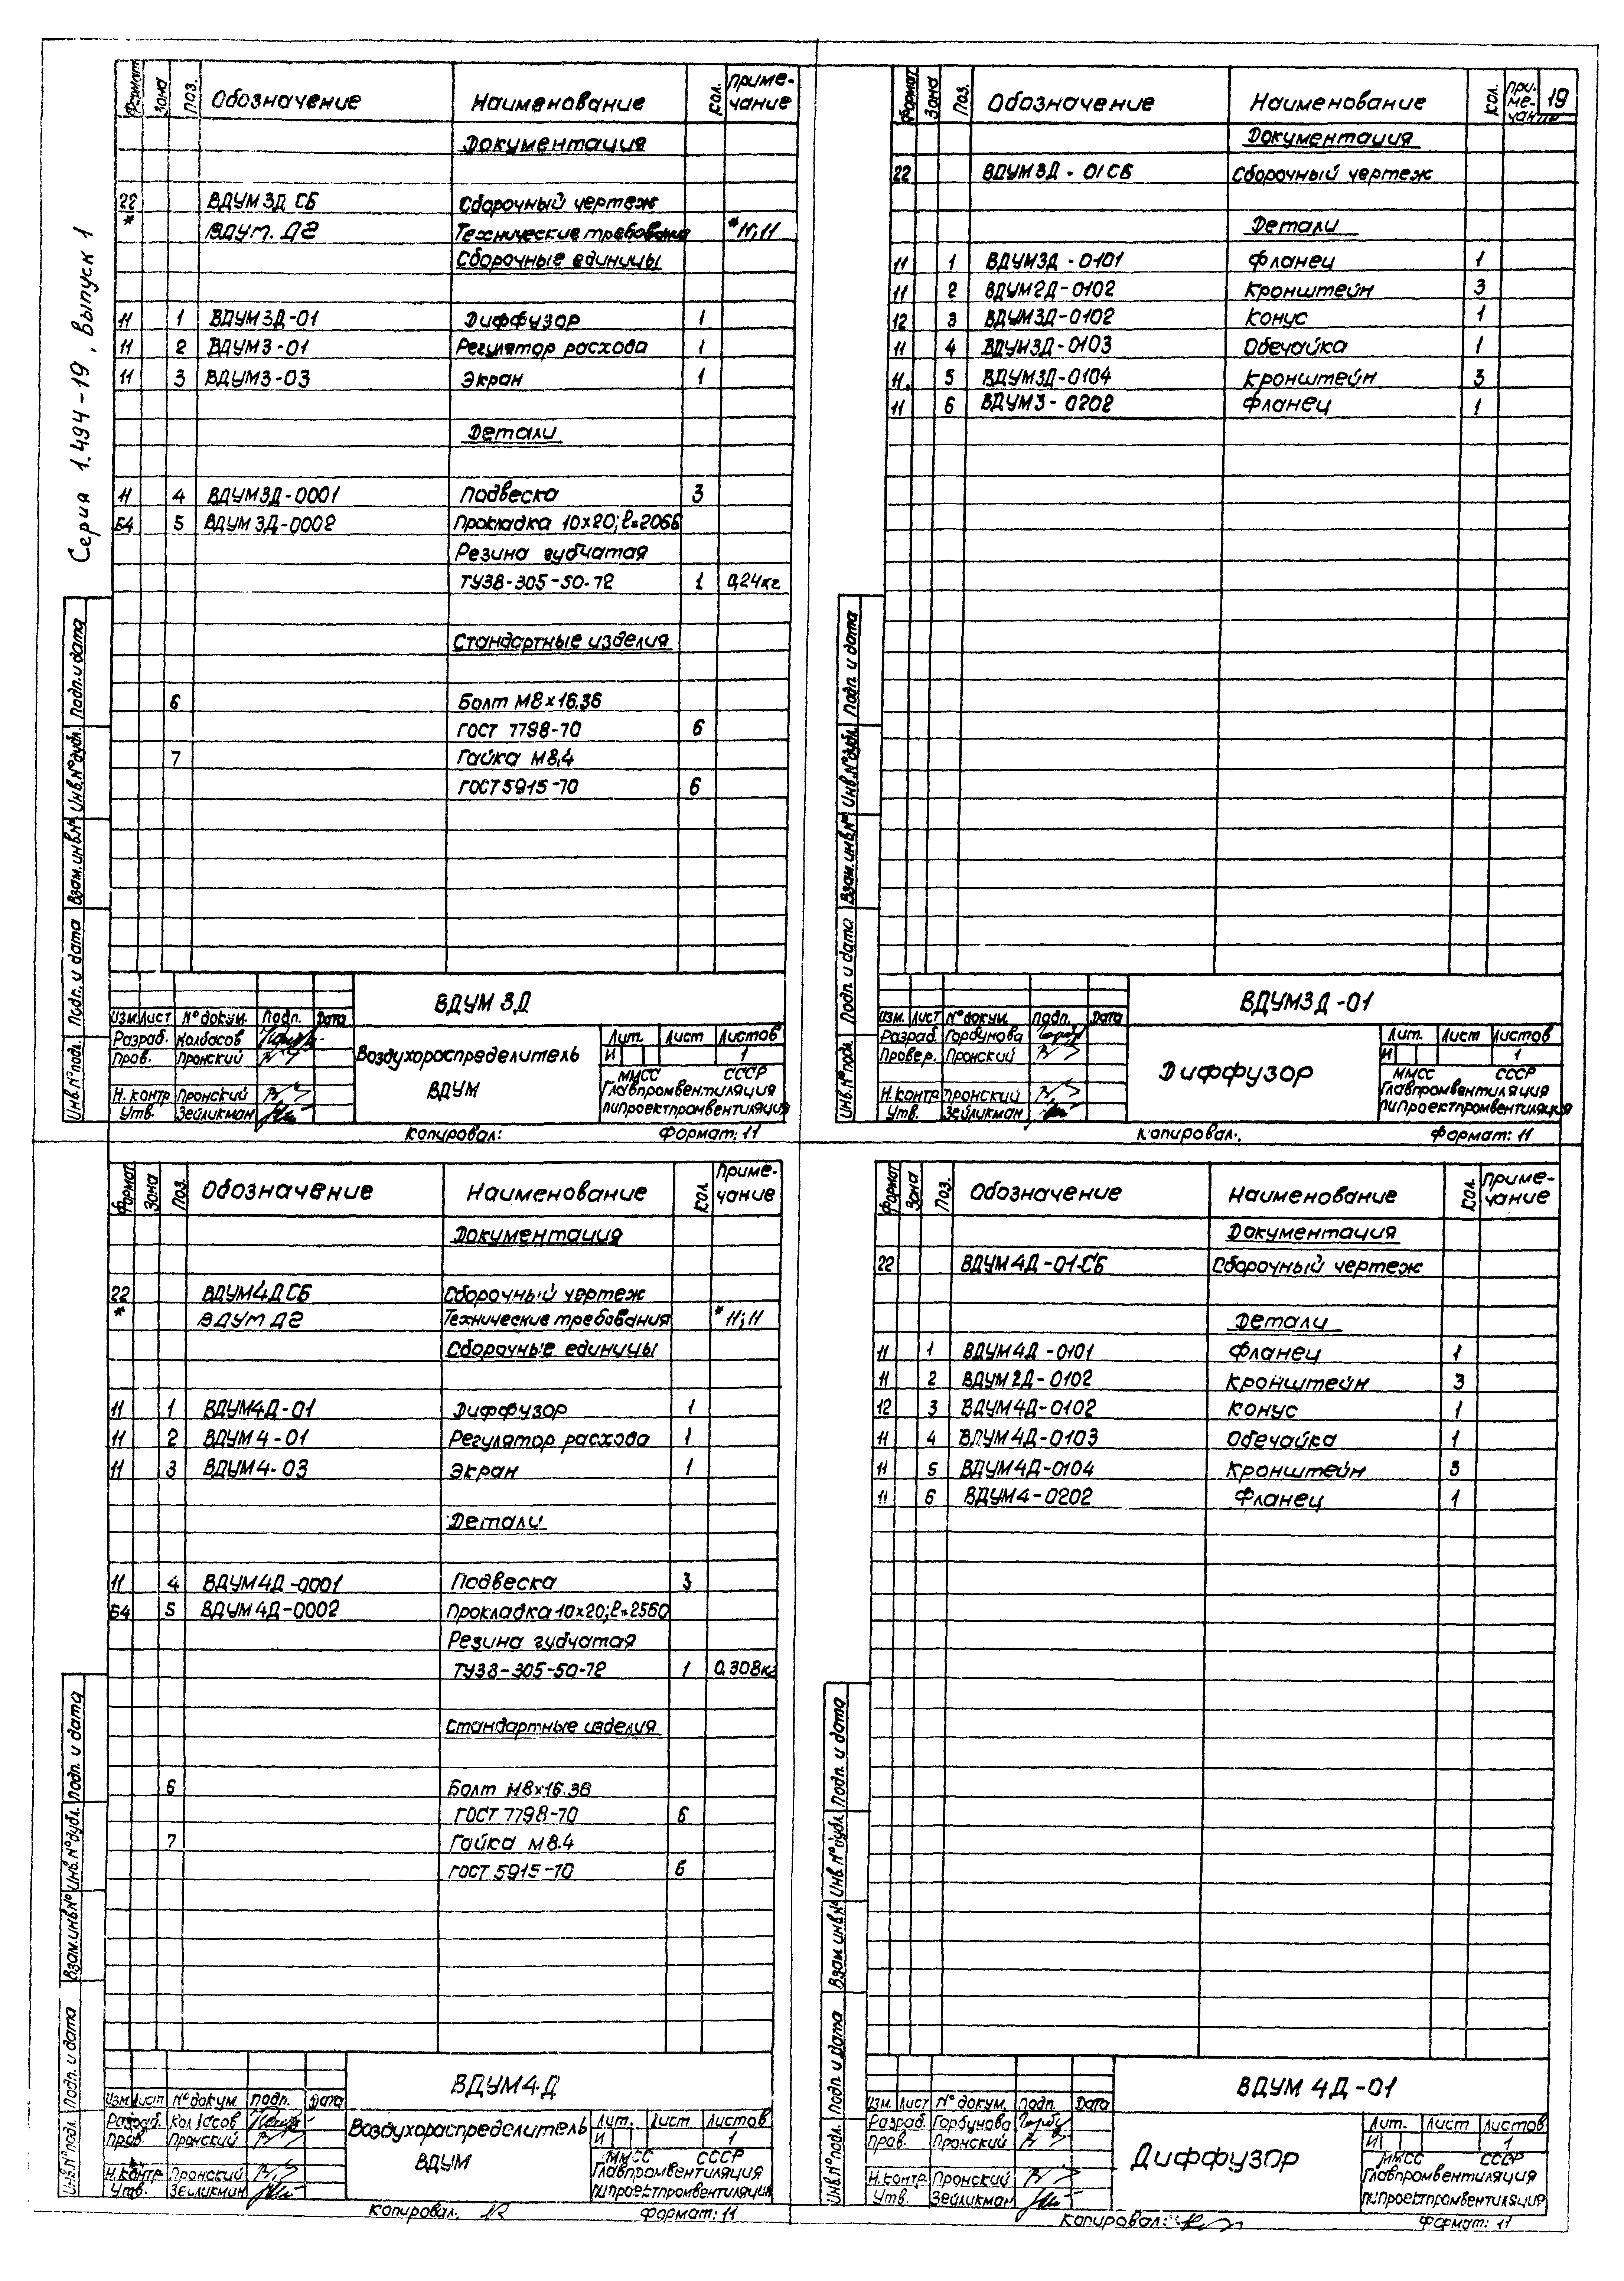 Серия 1.494-19, Выпуск 1
Формат Зона Поз. Обозначение Наименование Кол. Приме-чание
Документация
22 ВДУМ 3Д СБ Сборочный чертеж
* ВДУМ. Д2 Технические требования *11;11
Сборочные единицы
11 1 ВДУМ 3Д-01 Диффузор 1
11 2 ВДУМ3-01 Регулятор расхода 1
11 3 ВДУМ3-03 Экран 1
Детали
11 4 ВДУМ3Д-0001 Подвеска 3
Б4 5 ВДУМ 3Д-0002 Прокладка 10х20; ℓ=2066
Резина губчатая
ТУ38-305-50-72 1 0,24кг
Стандартные изделия
6 Болт М8х16.36
ГОСТ 7798-70 6
7 Гайка М8,4
ГОСТ 5915-70 6
ВДУМ 3Д
Изм. Лист № докум. Подп. Дата
Разраб. Колбасов
Пров. Пронский
Н. контр Пронский
Утв. Зейликман
Воздухораспределитель
ВДУМ
Лит. Лист Листов
И 1
ММСС СССР
Главпромвентиляция
ПИПроектпромвентиляция
Инв.№ подл. Подп. и дата Взам.инв.№ Инв.№ дубл. Подп. и дата
Копировал: Формат: 11
Формат Зона Поз. Обозначение Наименование Кол. При-ме-чание 19
Документация
22 ВДУМ 3Д - 01СБ Сборочный чертеж
Детали
11 1 ВДУМ3Д -0101 Фланец 1
11 2 ВДУМ2Д-0102 Кронштейн 3
12 3 ВДУМ3Д-0102 Конус 1
11 4 ВДУМ3Д-0103 Обечайка 1
11. 5 ВДУМ3Д-0104 Кронштейн 3
11 6 ВДУМ3-0202 Фланец 1
ВДУМ3Д-01
Изм. Лист № докум. Подп. Дата
Разраб. Горбунова
Провер. Пронский
Н.контр Пронский
Утв. Зейликман
Диффузор
Лит. Лист Листов
И 1
ММСС СССР
Главпромвентиляция
ПИПроектпромвентиляция
Инв.№ подл. Подп. и дата Взам.инв.№ Инв.№ дубл. Подп. и дата
Копировал. Формат: 11
Формат Зона Поз. Обозначение Наименование Кол. Приме-чание
Документация
22 ВДУМ4Д СБ Сборочный чертеж
* ВДУМ Д2 Технические требования *11;11
Сборочные единицы
11 1 ВДУМ4Д-01 Диффузор 1
11 2 ВДУМ 4-01 Регулятор расхода 1
11 3 ВДУМ4-03 Экран 1
Детали
11 4 ВДУМ4Д-0001 Подвеска 3
Б4 5 ВДУМ 4Д-0002 Прокладка 10х20; ℓ=2560
Резина губчатая
ТУ38-305-50-72 1 0,308кг
Стандартные изделия
6 Болт М8х16.36
ГОСТ 7798-70 6
7 Гайка М8.4
ГОСТ 5915-70 6
ВДУМ4Д
Изм. Лист № докум. Подп. Дата
Разраб. Колбасов
Пров. Пронский
Н.контр Пронский
Утв. Зейликман
Воздухораспределитель
ВДУМ
Лит. Лист Листов
И 1
ММСС СССР
Главпромвентиляция
ПИПроектпромвентиляция
Инв.№ подл. Подп. и дата Взам.инв.№ Инв.№ дубл. Подп. и дата
Копировал. Формат: 11
Формат Зона Поз. Обозначение Наименование Кол. Приме-чание
Документация
22 ВДУМ 4Д -01СБ Сборочный чертеж
Детали
11 1 ВДУМ4Д -0101 Фланец 1
11 2 ВДУМ 2Д-0102 Кронштейн 3
12 3 ВДУМ4Д-0102 Конус 1
11 4 ВДУМ 4Д-0103 Обечайка 1
11 5 ВДУМ4Д-0104 Кронштейн 3
11 6 ВДУМ4-0202 Фланец 1
ВДУМ 4Д-01
Изм. Лист № докум. Подп. Дата
Разраб. Горбунова
Пров. Пронский
Н.контр. Пронский
Утв. Зейликман
Диффузор
Лит. Лист Листов
И 1
ММСС СССР
Главпромвентиляция
ПИПроектпромвентиляция
Инв.№ подл. Подп. и дата Взам.инв.№ Инв.№ дубл. Подп. и дата
Копировал: Формат: 11